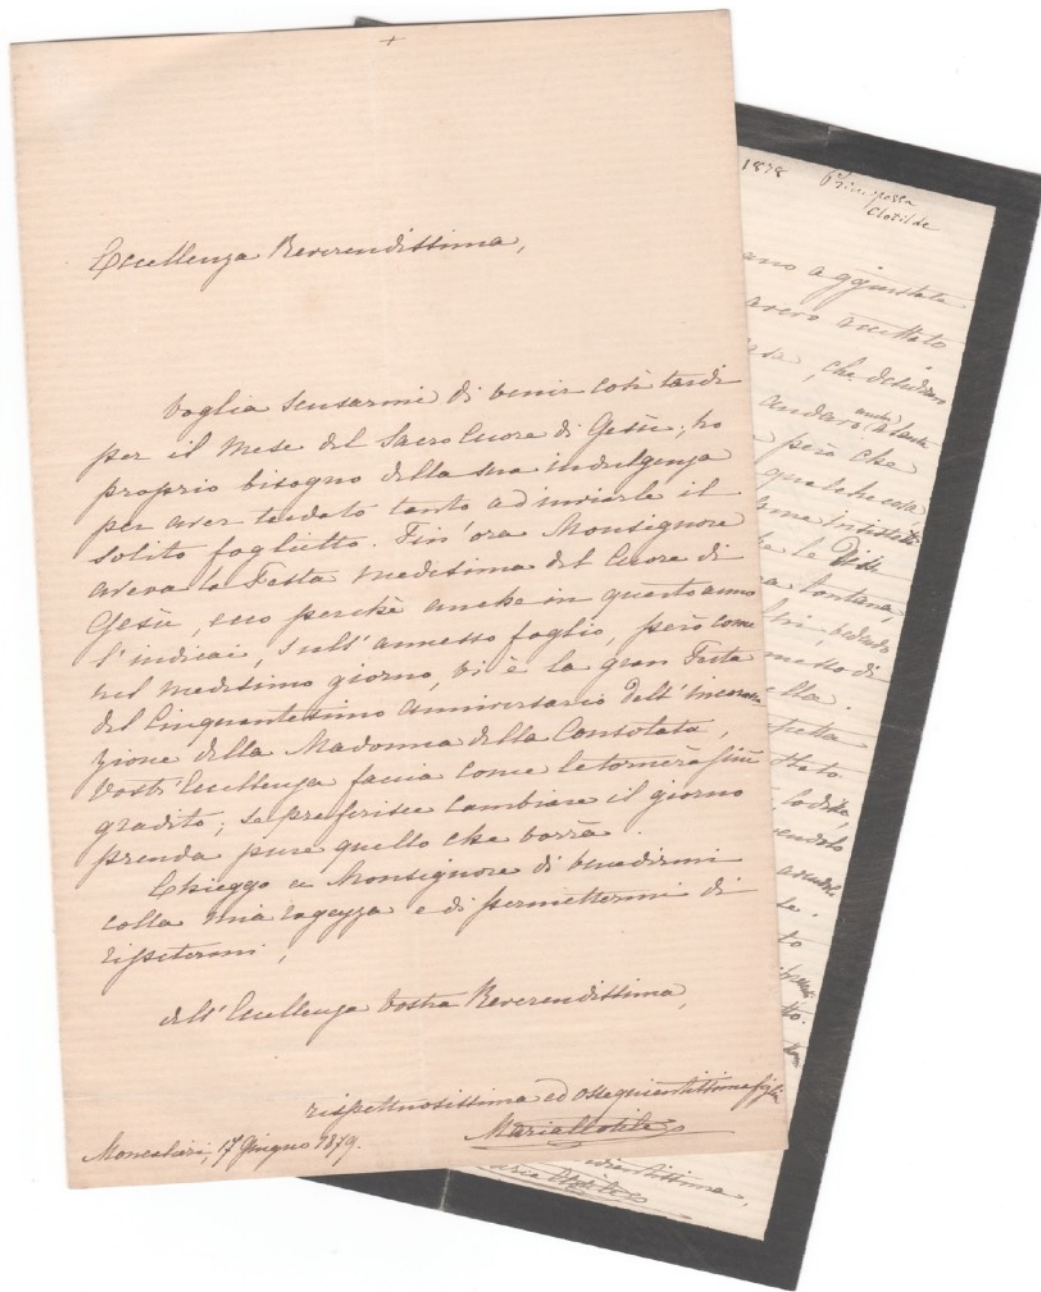 +
Eccellenza Reverendissima,
Voglia scusarmi di venir così tardi
per il mese del Sacro Cuore di Gesù; ho
proprio bisogno della sua indulgenza
per aver tardato tanto ad inviarle il
solito foglietto. Fin'ora Monsignore
aveva la Festa medesima del Cuore di
Gesù, ecco perchè anche in questo anno
l'indicai, sull'annesso foglio, però come
nel medesimo giorno, vi è la gran Festa
del Cinquantesimo anniversario dell'incorona
zione della Madonna della Consolata,
Vostr'Eccellenza faccia come le tornerà più
gradito; se preferisce cambiare il giorno
prenda pure quello che vorrà.
Chieggo a Monsignore di benedirmi
colla mia ragazza e di permettermi di
ripetermi,
dell'Eccellenza Vostra Reverendissima,
rispettosissima ed ossequientissima figlia
Maria Clotilde
Moncalieri, 17 Giugno 1879.
1878 Principessa
Clotilde
aggiustata
avevo accettato
, che desideravo
andare anche a Santa
però che
qualche cosa
insistetti
le Disse
lontana,
vedendo
messo di
ella.
Stato.
to
Maria Clotilde